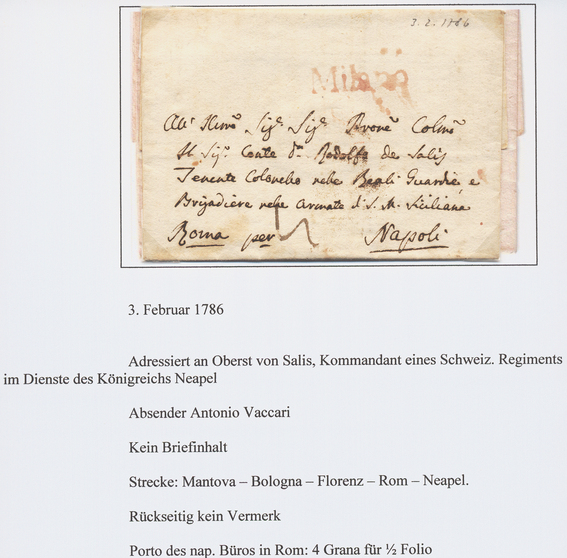 3. 2. 1786
Milano
All' Illmõ Sigr. Sigr. Prone Colmõ
Il Sigr. Conte Dn. Rodolfo de Salis
Tenente Colonello nelle Reali Guardie, e
Brigadiere nelle Armate di S. M. Siciliana
Roma per Napoli
3. Februar 1786
Adressiert an Oberst von Salis, Kommandant eines Schweiz. Regiments
im Dienste des Königreichs Neapel
Absender Antonio Vaccari
Kein Briefinhalt
Strecke: Mantova – Bologna – Florenz – Rom – Neapel.
Rückseitig kein Vermerk
Porto des nap. Büros in Rom: 4 Grana für ½ Folio